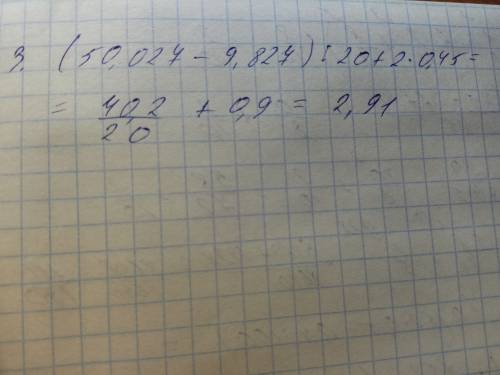 3. (50,027 - 9,827) : 20 + 2 · 0,45 =
= 40,2/20 + 0,9 = 2,91